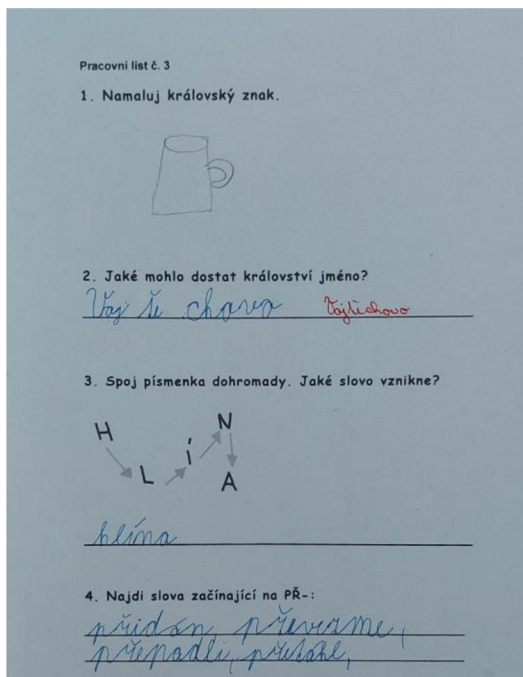 Pracovní list č. 3
1. Namaluj královský znak.
2. Jaké mohlo dostat království jméno?
Voj tě chovo Vojtěchovo
3. Spoj písmenka dohromady. Jaké slovo vznikne?
H L Í N A
hlína
4. Najdi slova začínající na PŘ-:
přidán převezme,
přepadli, přetáhl,